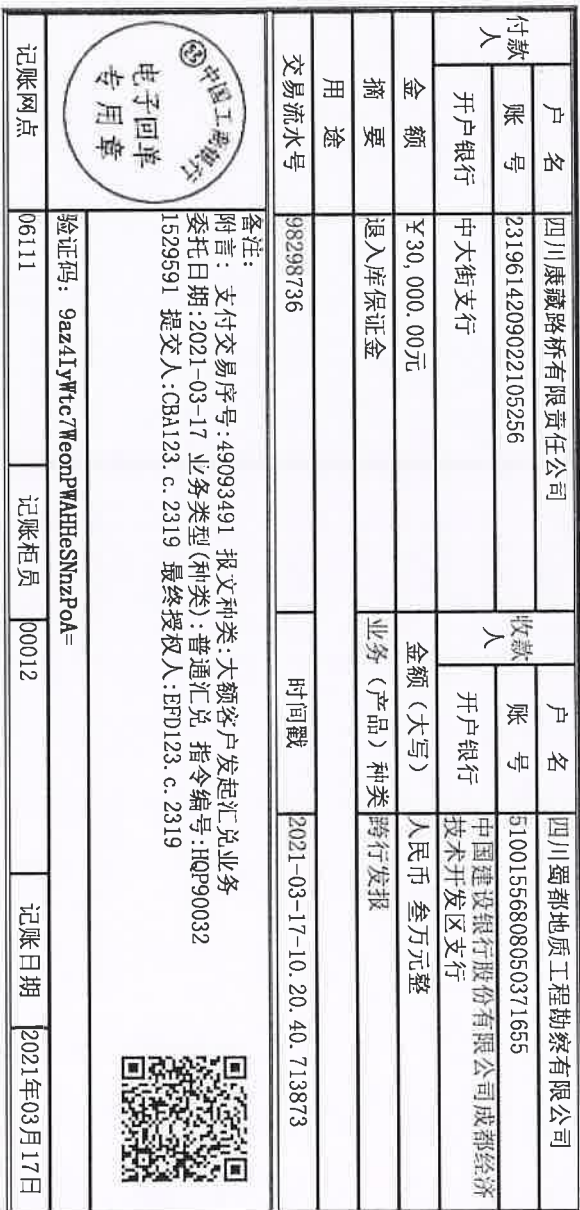 付款人
户 名
四川康藏路桥有限责任公司
账 号
2319614209022105256
开户银行
中大街支行
收款人
户 名
四川蜀都地质工程勘察有限公司
账 号
51001556808050371655
开户银行
中国建设银行股份有限公司成都经济
技术开发区支行
金 额
¥30,000.00元
金额（大写）
人民币 叁万元整
摘 要
退入库保证金
业务（产品）种类
跨行发报
用 途
交易流水号
98298736
时间戳
2021-03-17-10.20.40.713873
中国工商银行
电子回单
专用章
备注:
附言: 支付交易序号:49093491 报文种类:大额客户发起汇兑业务
委托日期:2021-03-17 业务类型(种类):普通汇兑 指令编号:HQP90032
1529591 提交人:CBA123.c.2319 最终授权人:EFD123.c.2319
验证码: 9az4IyWtc7WeonPWAHHeSNnzPoA=
记账网点
06111
记账柜员
00012
记账日期
2021年03月17日